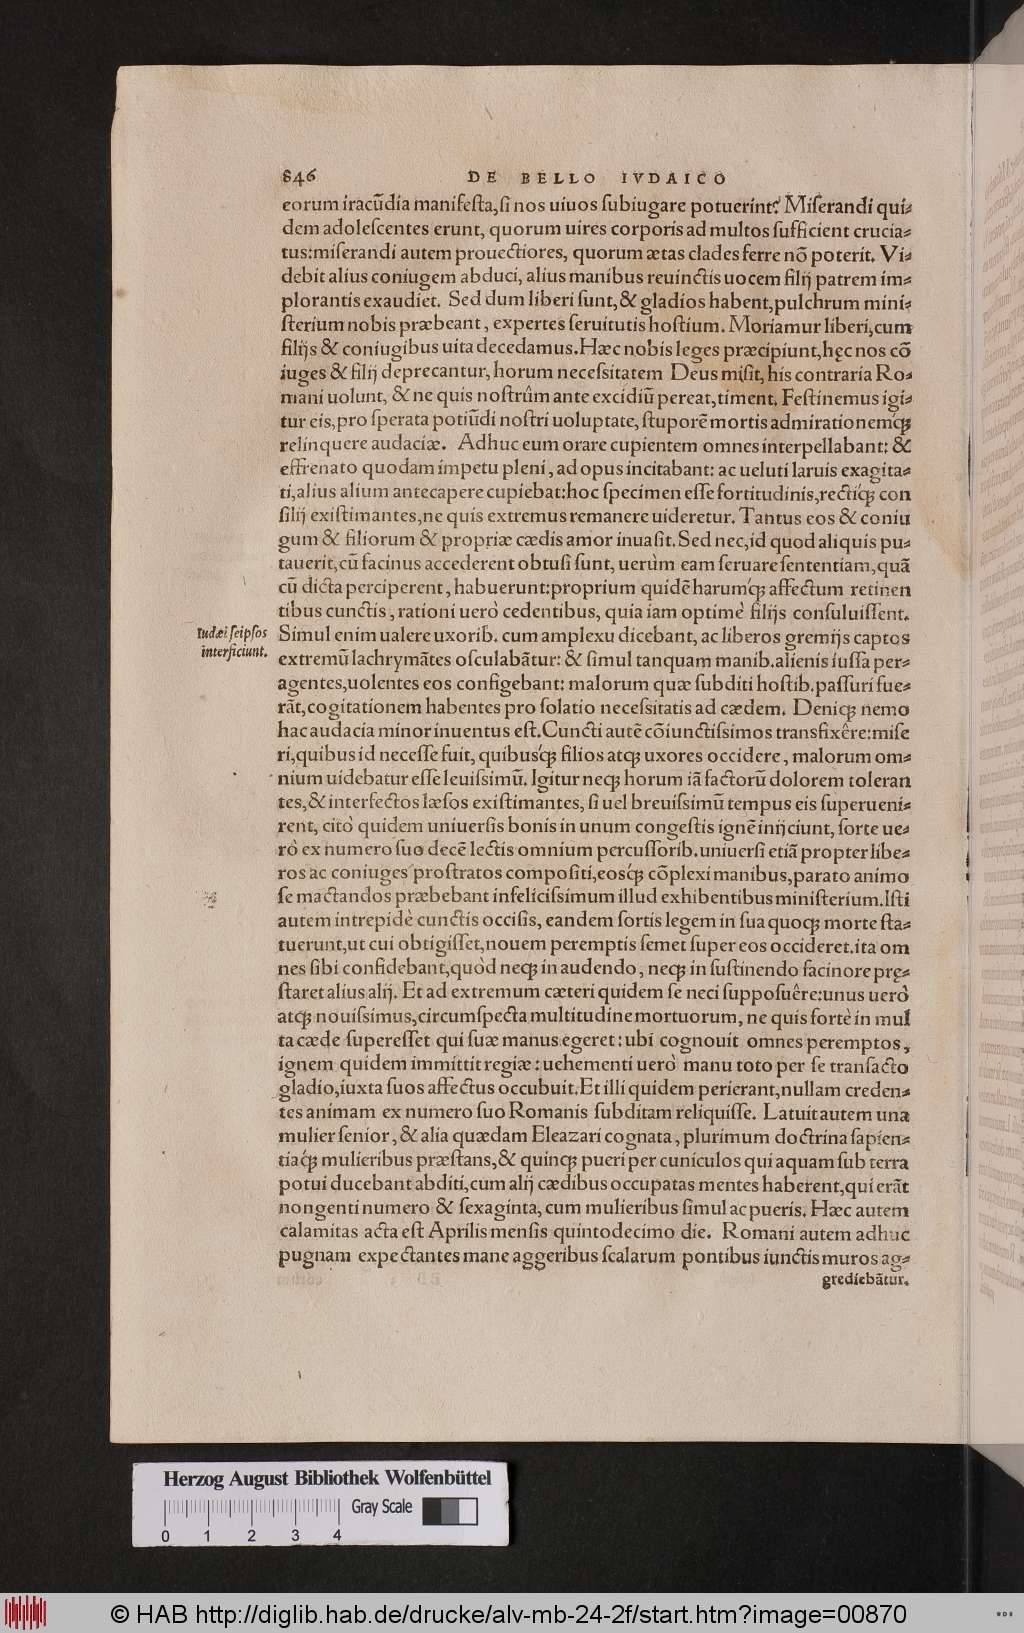 846 DE BELLO IVDAICO
eorum iracũdia manifeſta,ſi nos uiuos ſubiugare potuerint? Miſerandi qui-
dem adoleſcentes erunt, quorum uires corporis ad multos ſufficient crucia-
tus:miſerandi autem prouectiores, quorum ætas clades ferre nõ poterit. Vi-
debit alius coniugem abduci, alius manibus reuinctis uocem filij patrem im-
plorantis exaudiet. Sed dum liberi ſunt,& gladios habent,pulchrum mini-
ſterium nobis præbeant, expertes ſeruitutis hoſtium. Moriamur liberi,cum
filijs & coniugibus uita decedamus.Hæc nobis leges præcipiunt,hęc nos cõ
iuges & filij deprecantur, horum neceſsitatem Deus miſit, his contraria Ro-
mani uolunt, & ne quis noſtrûm ante excidiũ pereat,timent. Feſtinemus igi-
tur eis,pro ſperata potiũdi noſtri uoluptate, ſtuporẽ mortis admirationemq́;
relinquere audaciæ. Adhuc eum orare cupientem omnes interpellabant: &
effrenato quodam impetu pleni, ad opus incitabant: ac ueluti laruis exagita-
ti,alius alium antecapere cupiebat:hoc ſpecimen eſſe fortitudinis,rectiq́; con
ſilij exiſtimantes,ne quis extremus remanere uideretur. Tantus eos & coniu
gum & filiorum & propriæ cædis amor inuaſit. Sed nec,id quod aliquis pu-
tauerit,cũ facinus accederent obtuſi ſunt, uerùm eam ſeruare ſententiam,quã
cũ dicta perciperent, habuerunt:proprium quidẽ harumq́; affectum retinen
tibus cunctis, rationi uerò cedentibus, quia iam optimè filijs conſuluiſſent.
Iudæi ſeipſos
interficiunt.
Simul enim ualere uxorib. cum amplexu dicebant, ac liberos gremijs captos
extremũ lachrymãtes oſculabãtur: & ſimul tanquam manib.alienis iuſſa per-
agentes,uolentes eos configebant: malorum quæ ſubditi hoſtib.paſſuri fue-
rãt,cogitationem habentes pro ſolatio neceſsitatis ad cædem. Deniq; nemo
hac audacia minor inuentus eſt.Cuncti autẽ cõiunctiſsimos transfixêre:miſe
ri,quibus id neceſſe fuit, quibusq́; filios atq; uxores occidere, malorum om-
nium uidebatur eſſe leuiſsimũ. Igitur neq; horum iã factorũ dolorem toleran
tes,& interfectos læſos exiſtimantes, ſi uel breuiſsimũ tempus eis ſuperueni-
rent, citò quidem uniuerſis bonis in unum congeſtis ignẽ inijciunt, ſorte ue-
rò ex numero ſuo decẽ lectis omnium percuſſorib.uniuerſi etiã propter libe-
ros ac coniuges proſtratos compoſiti,eosq́; cõplexi manibus,parato animo
ſe mactandos præbebant infeliciſsimum illud exhibentibus miniſterium.Iſti
autem intrepidè cunctis occiſis, eandem ſortis legem in ſua quoq; morte ſta-
tuerunt,ut cui obtigiſſet,nouem peremptis ſemet ſuper eos occideret.ita om
nes ſibi confidebant,quòd neq; in audendo, neq; in ſuſtinendo facinore prę-
ſtaret alius alij. Et ad extremum cæteri quidem ſe neci ſuppoſuêre:unus uerò
atq; nouiſsimus,circumſpecta multitudine mortuorum, ne quis fortè in mul
ta cæde ſupereſſet qui ſuæ manus egeret: ubi cognouit omnes peremptos,
ignem quidem immittit regiæ: uehementi uerò manu toto per ſe tranſacto
gladio,iuxta ſuos affectus occubuit.Et illi quidem perierant,nullam creden-
tes animam ex numero ſuo Romanis ſubditam reliquiſſe. Latuit autem una
mulier ſenior, & alia quædam Eleazari cognata, plurimum doctrina ſapien-
tiaq́; mulieribus præſtans,& quinq; pueri per cuniculos qui aquam ſub terra
potui ducebant abditi,cum alij cædibus occupatas mentes haberent,qui erãt
nongenti numero & ſexaginta, cum mulieribus ſimul ac pueris. Hæc autem
calamitas acta eſt Aprilis menſis quintodecimo die. Romani autem adhuc
pugnam expectantes mane aggeribus ſcalarum pontibus iunctis muros ag-
grediebãtur.
Herzog August Bibliothek Wolfenbüttel
Gray Scale
0 1 2 3 4
© HAB http://diglib.hab.de/drucke/alv-mb-24-2f/start.htm?image=00870